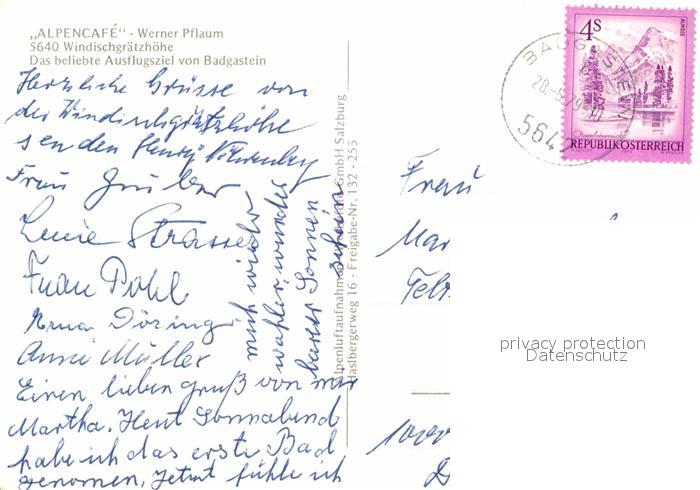 „ALPENCAFÉ" - Werner Pflaum
5640 Windischgrätzhöhe
Das beliebte Ausflugsziel von Badgastein
Herzliche Grüsse von
der Windischgrätzhöhe
senden Henry
Frau Gruber
Lucie Strasser
Frau Pohl
Erna Döring
Anni Müller
Einen lieben Gruß von mir
Martha. Heut Sonnabend
habe ich das erste Bad
genomen. Jetzt fühle ich
mich wieder
wohler, wunder
barer Sonnen
schein
Alpenluftaufnahmen GmbH Salzburg
Haslbergerweg 16 - Freigabe-Nr. 132 - 253
4S
ALMSEE
REPUBLIK ÖSTERREICH
BADGASTEIN
5640
Frau
Mar
privacy protection
Datenschutz